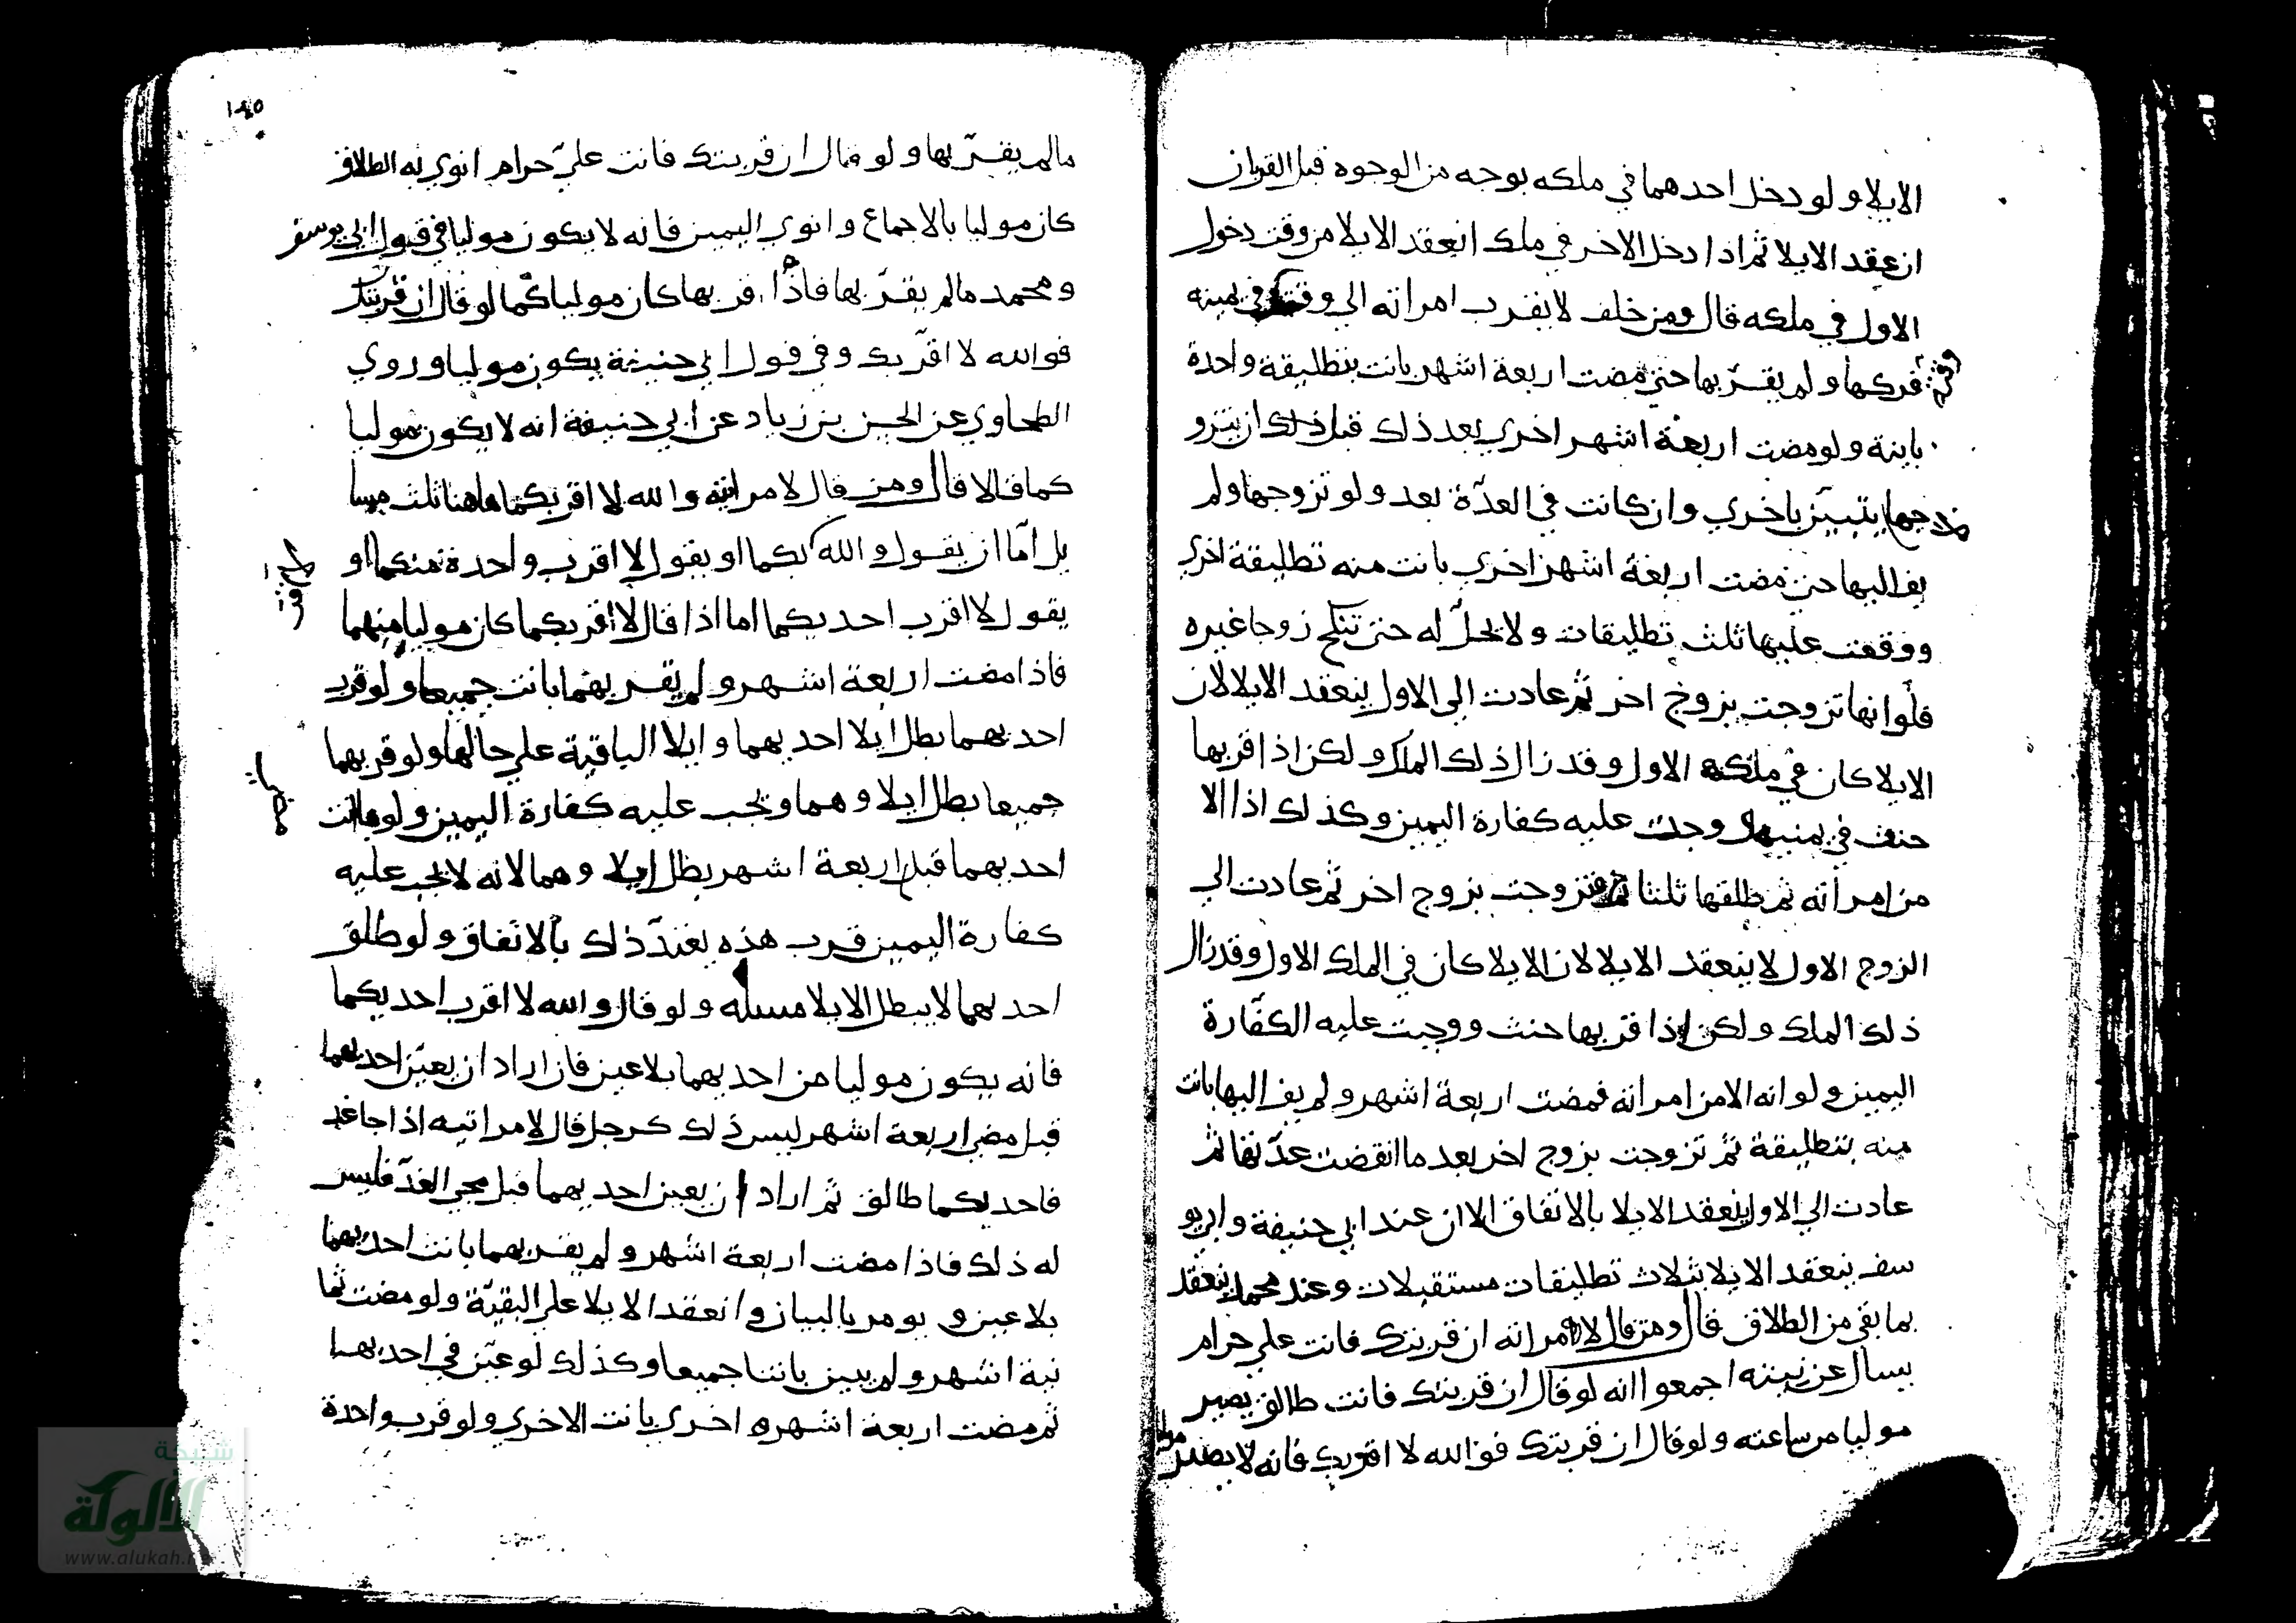 الايلا ولو دخل احدهما في ملكه بوجه من الوجوه قبل القربان
انعقد الايلا ثم اذا دخل الاخر في ملك انعقد الايلا من وقت دخول
الاول في ملكه قال ومن حلف لا يقرب امراته الي وقت في يمينه
فتركها ولم يقربها حتي مضت اربعة اشهر بانت بتطليقة واحدة
باينة ولو مضت اربعة اشهر اخري بعد ذلك قبل ذلك ان يتزو
جها يتبين باخري وان كانت في العدّة بعد ولو تزوجها ولم
يف اليها حتي مضت اربعة اشهر اخري بانت منه تطليقة اخري
ووقعت عليها ثلث تطليقات ولا تحلّ له حتي تنكح زوجا غيره
فلو انها تزوجت بزوج اخر ثم عادت الي الاول ينعقد الايلا لان
الايلا كان في ملكه الاول وقد زال ذلك الملك ولكن اذا قربها
حنث في يمنيها وجدت عليه كفارة اليمين وكذلك اذا الا
من امرأته ثم طلقها ثلثا فتزوجت بزوج اخر ثم عادت الي
الزوج الاول لا ينعقد الايلا لان الايلا كان في الملك الاول وقد زال
ذلك الملك ولكن اذا قربها حنث ووجبت عليه الكفّارة
اليمين ولو انه الا من امراته فمضت اربعة اشهر ولم يف اليها بانت
منه بتطليقة ثم تزوجت بزوج اخر بعد ما انقضت عدّتها ثم
عادت الي الاول ينعقد الايلا بالاتفاق الا ان عند ابي حنيفة وابي يو
سف ينعقد الايلا بثلاث تطليقات مستقبلات وعند محمد ينعقد
بما بقي من الطلاق قال ومن قال لامراته ان قربتك فانت علي حرام
يسال عن نيته اجمعوا انه لو قال ان قربتك فانت طالق يصير
موليا من ساعته ولو قال ان قربتك فوالله لا اقربك فانه لا يصير موليا
١٤٥
مالم يقرّبها ولو قال ان قربتك فانت عليّ حرام انوي به الطلاق
كان موليا بالاجماع وانوي اليمين فانه لا يكون موليا في قول ابي يوسف
ومحمد مالم يقرّبها فاذا قربها كان موليا كما لو قال ان قربتك
فوالله لا اقرّبك وفي قول ابي حنيفة يكون موليا وروي
الطحاوي عن الحسن بن زياد عن ابي حنيفة انه لا يكون موليا
كما قالا قال ومن قال لامراتيه والله لا اقربكما هاهنا ثلث مسا
يل امّا ان يقول والله بكما او يقول لا اقرب واحدة منكما او
يقول لا اقرب احديكما اما اذا قال لا اقربكما كان موليا منهما
فاذا مضت اربعة اشهر ولم يقربهما بانت جميعا ولو قرب
احديهما بطل ايلا احديهما وايلا الباقية علي حالها ولو قربهما
جميعا بطل ايلاوهما وتجب عليه كفارة اليمين ولو ماتت
احديهما قبل اربعة اشهر بطل ايلاوهما لانه لا تجب عليه
كفارة اليمين قرب هذه بعد ذلك بالاتفاق ولو طلق
احديهما لا يبطل الايلا مسله ولو قال والله لا اقرب احديكما
فانه يكون موليا من احديهما بلا عين فان اراد ان يعيّن احديهما
قبل مضي اربعة اشهر ليس ذلك كرجل قال لامراتيه اذا جا غد
فاحديكما طالق ثم اراد ان يعين احديهما قبل مجي الغد فليس
له ذلك فاذا مضت اربعة اشهر ولم يقربهما بانت احديهما
بلا عين ويومر بالبيان وانعقد الايلا علي البقيّة ولو مضت ثما
نية اشهر ولم يبين بانتا جميعا وكذلك لو عيّن في احديهما
ثم مضت اربعة اشهر اخري بانت الاخري ولو قرب واحدة
شبكة
الألوكة